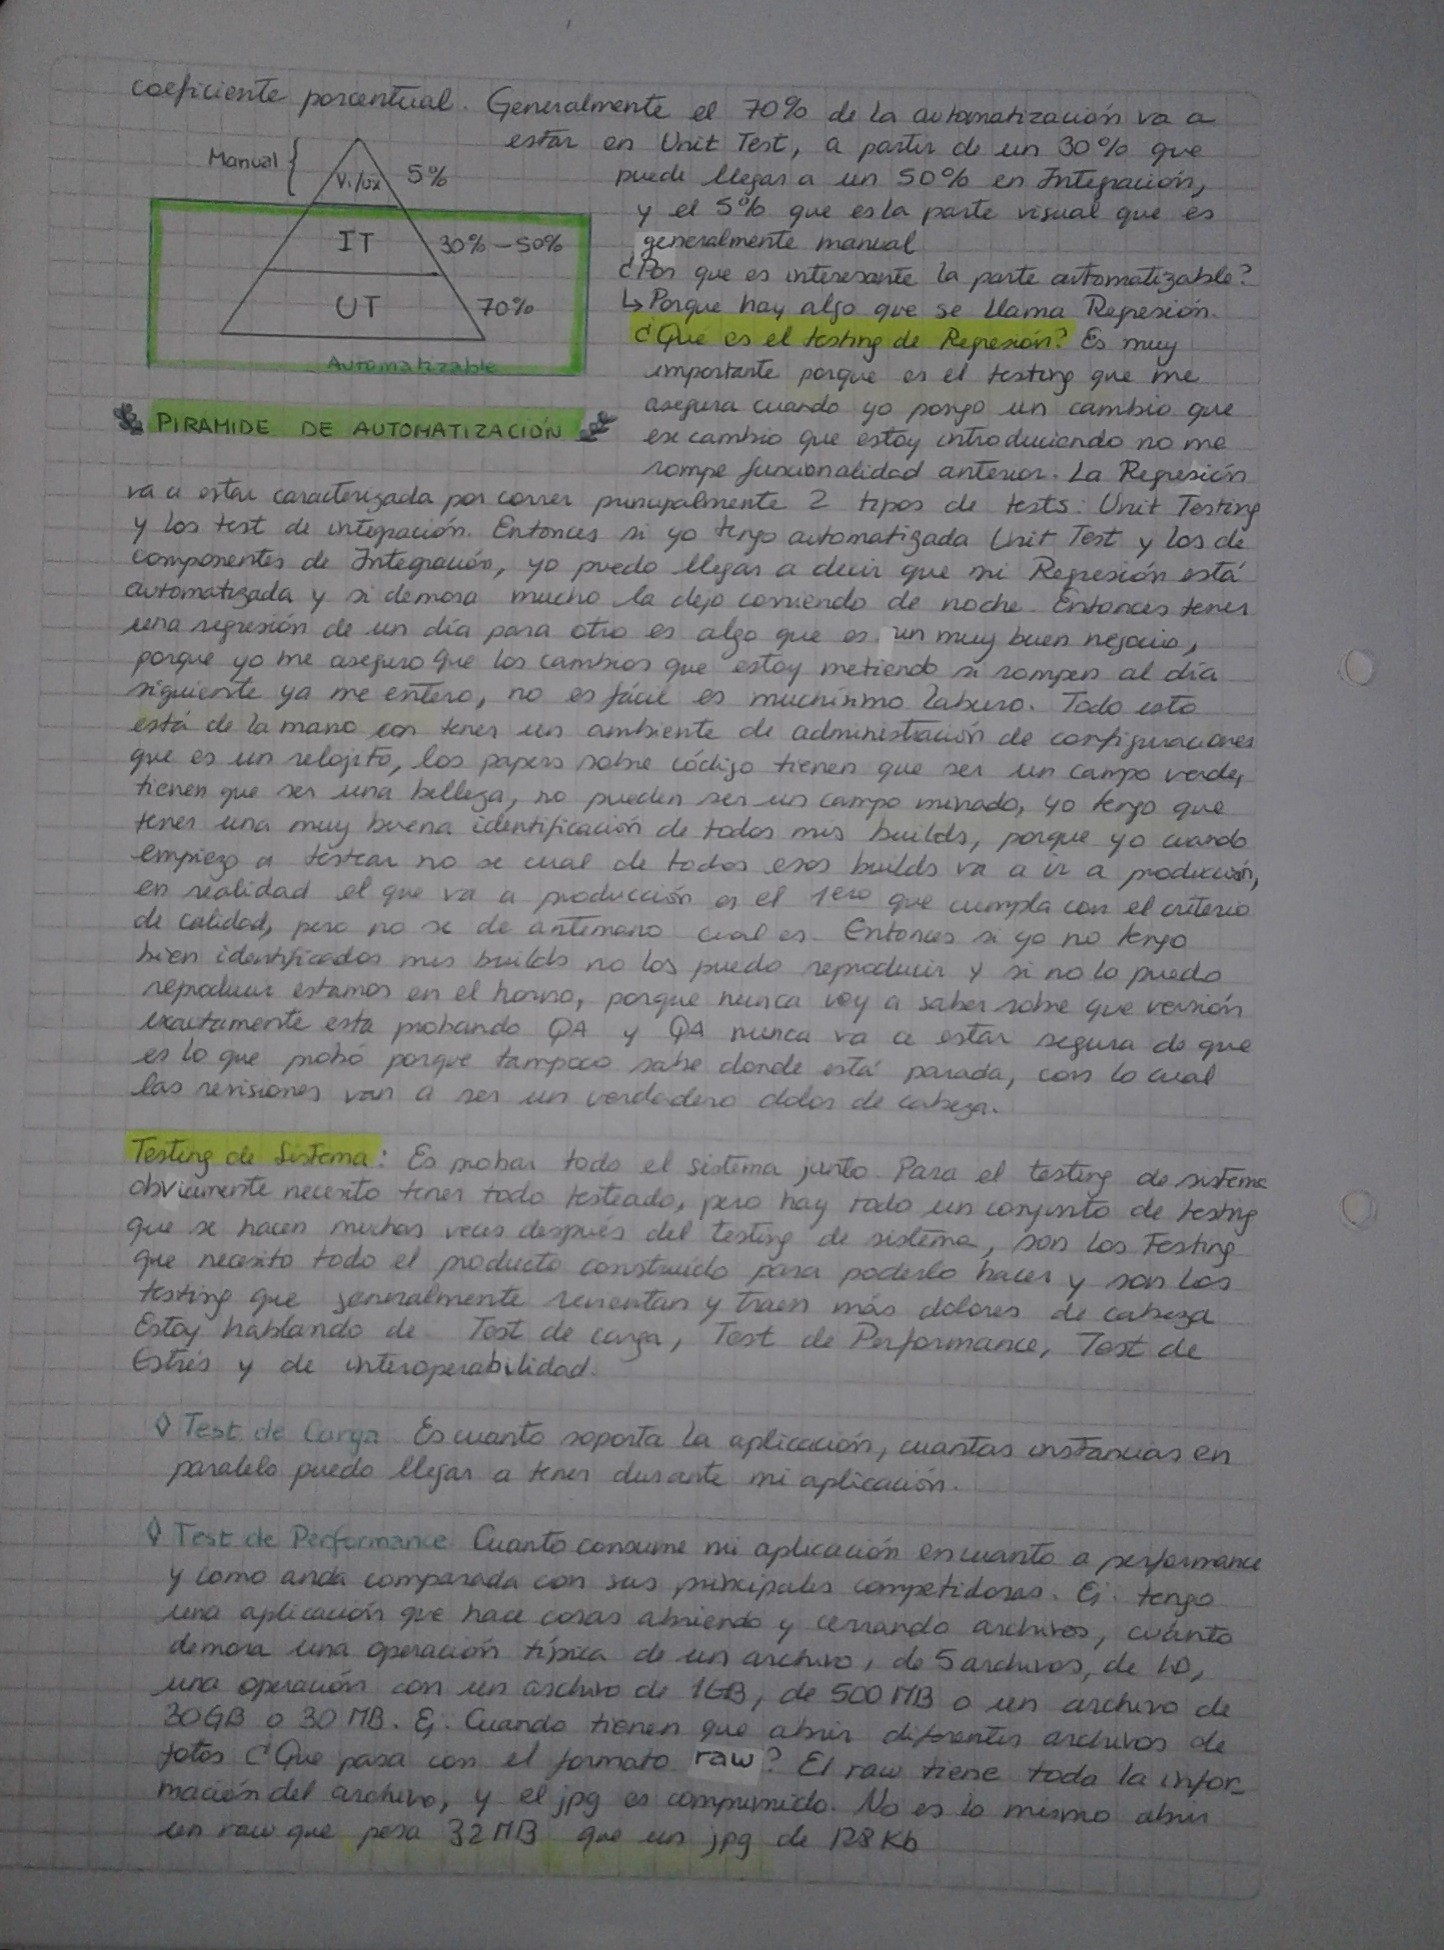 coeficiente porcentual. Generalmente el 70% de la automatización va a
estar en Unit Test, a partir de un 30% que
puede llegar a un 50% en Integración,
y el 5% que es la parte visual que es
generalmente manual
Manual { Vi/ux 5%
IT 30% - 50%
UT 70%
Automatizable
PIRAMIDE DE AUTOMATIZACIÓN
¿Por que es interesante la parte automatizable?
↳ Porque hay algo que se llama Regresión.
¿Qué es el testing de Regresión? Es muy
importante porque es el testing que me
asegura cuando yo pongo un cambio que
ese cambio que estoy introduciendo no me
rompe funcionalidad anterior. La Regresión
va a estar caracterizada por correr principalmente 2 tipos de tests: Unit Testing
y los test de integración. Entonces si yo tengo automatizada Unit Test y los de
componentes de Integración, yo puedo llegar a decir que mi Regresión está
automatizada y si demora mucho la dejo corriendo de noche. Entonces tener
una regresión de un día para otro es algo que es un muy buen negocio,
porque yo me aseguro que los cambios que estoy metiendo si rompen al día
siguiente ya me entero, no es fácil es muchísimo laburo. Todo esto
está de la mano con tener un ambiente de administración de configuraciones
que es un relojito, los papers sobre código tienen que ser un campo verde,
tienen que ser una belleza, no pueden ser un campo minado, yo tengo que
tener una muy buena identificación de todos mis builds, porque yo cuando
empiezo a testear no se cual de todos esos builds va a ir a producción,
en realidad el que va a producción es el 1ero que cumpla con el criterio
de calidad, pero no se de antemano cual es. Entonces si yo no tengo
bien identificados mis builds no los puedo reproducir y si no lo puedo
reproducir estamos en el horno, porque nunca voy a saber sobre que versión
exactamente esta probando QA y QA nunca va a estar segura de que
es lo que probó porque tampoco sabe donde está parada, con lo cual
las revisiones van a ser un verdadero dolor de cabeza.
Testing de Sistema: Es probar todo el sistema junto. Para el testing de sistema
obviamente necesito tener todo testeado, pero hay todo un conjunto de testing
que se hacen muchas veces después del testing de sistema, son los Testing
que necesito todo el producto construido para poderlo hacer y son los
testing que generalmente revientan y traen más dolores de cabeza
Estoy hablando de. Test de carga, Test de Performance, Test de
Estrés y de interoperabilidad.
◊ Test de Carga. Es cuanto soporta la aplicación, cuantas instancias en
paralelo puedo llegar a tener durante mi aplicación.
◊ Test de Performance Cuanto consume mi aplicación en cuanto a performance
y como anda comparada con sus principales competidores. Ej: tengo
una aplicación que hace cosas abriendo y cerrando archivos, cuánto
demora una operación típica de un archivo, de 5 archivos, de 10,
una operación con un archivo de 1GB, de 500 MB o un archivo de
30GB o 30 MB. Ej. Cuando tienen que abrir diferentes archivos de
fotos ¿Que pasa con el formato raw? El raw tiene toda la infor-
mación del archivo, y el jpg es comprimido. No es lo mismo abrir
un raw que pesa 32 MB que un jpg de 128 Kb